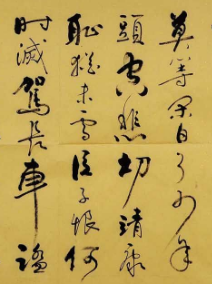 莫等閑白了少年
頭空悲切靖康
恥猶未雪臣子恨何
時滅駕長車踏